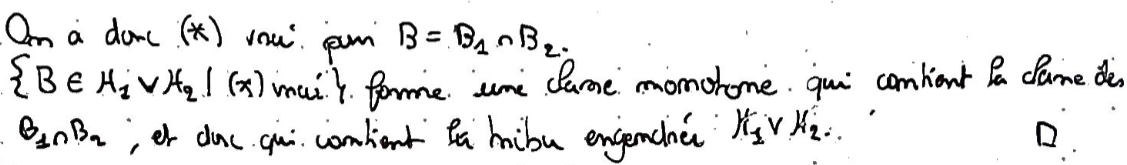 On a donc (*) vrai pour B = B₁ ∩ B₂.
{B ∈ H₁ ∨ H₂ | (*) vrai} forme une classe monotone qui contient la classe des
B₁∩B₂, et donc qui contient la tribu engendrée H₁ ∨ H₂. □